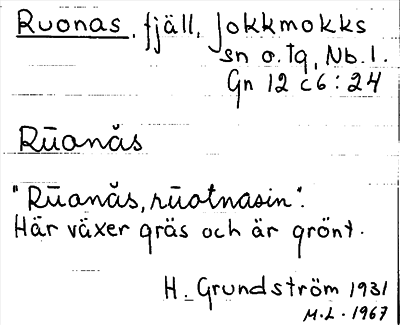 Ruonas, fjäll, Jokkmokks
sn o. tg, Nb. l.
Gn 12 c 6 : 24
Rūanăs
"Rūanăs, rūotnasin".
Här växer gräs och är grönt.
H. Grundström 1931
M.L. 1967